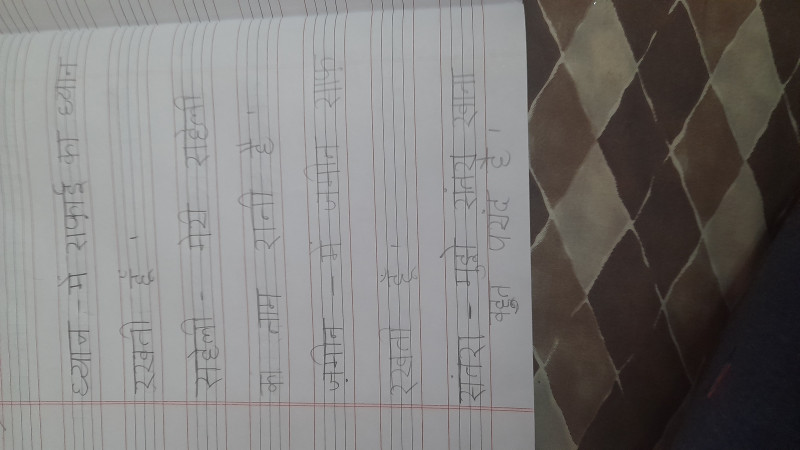 ध्यान - मे सफाई का ध्यान
रखती हूँ ।
सहेली - मेरी सहेली
का नाम रानी है ।
ज़मीन - में जमीन साफ़
रखती हूँ ।
संतरा - मुझे संतरा खाना
बहुत पसंद है ।